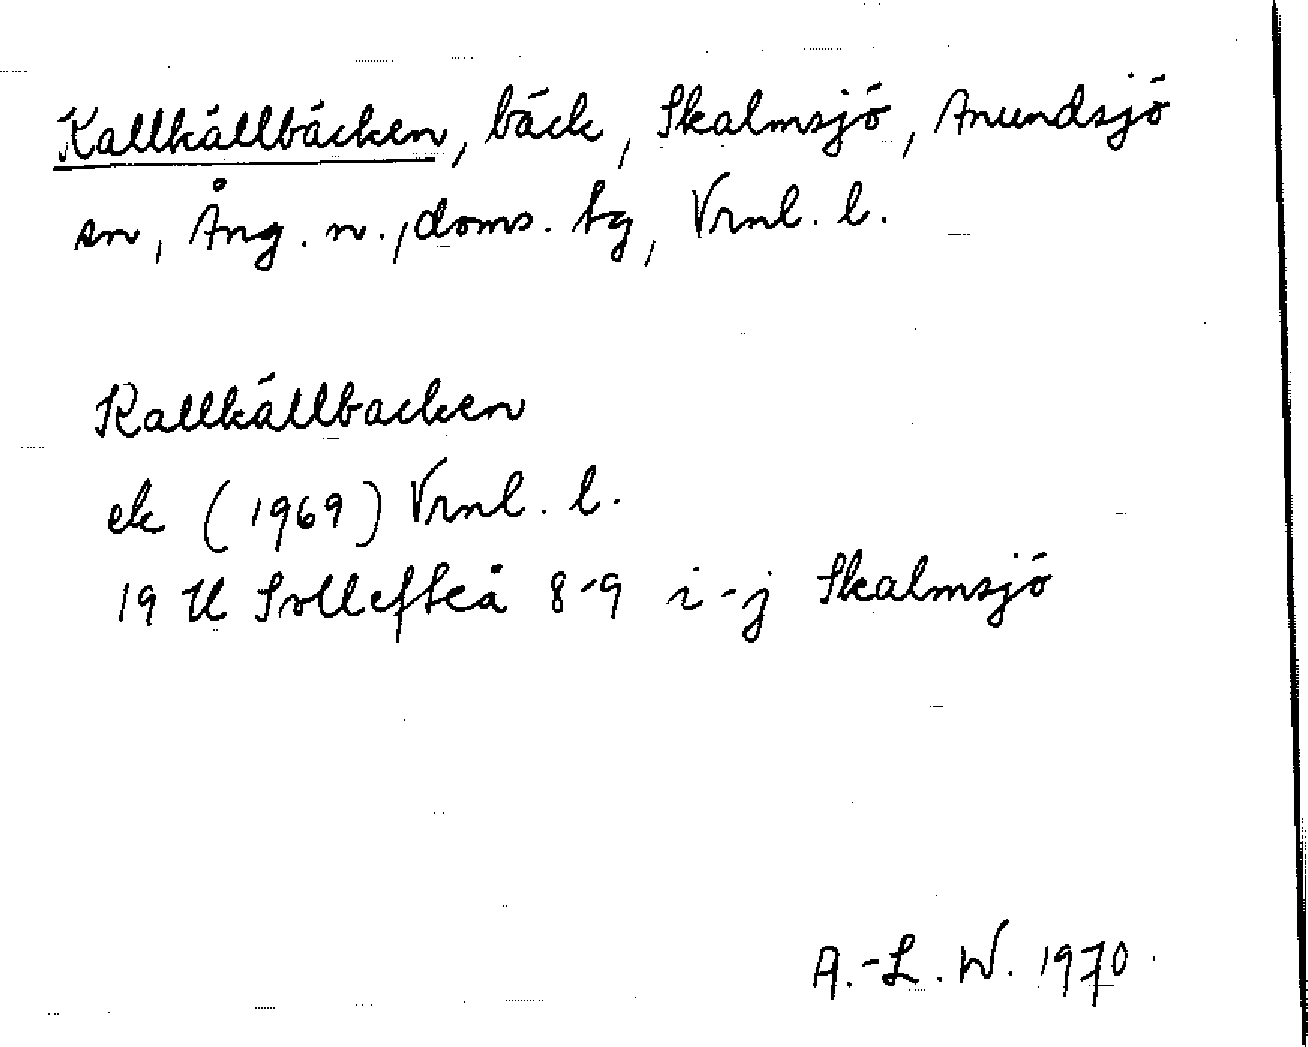 Kallkällbäcken, bäck, Skalmsjö, Anundsjö
sn, Ång. n., doms. tg, Vrnl. l.
Kallkällbacken
ek (1969) Vrnl. l.
19 H Sollefteå 8-9 i-j Skalmsjö
A.-L. W. 1970.